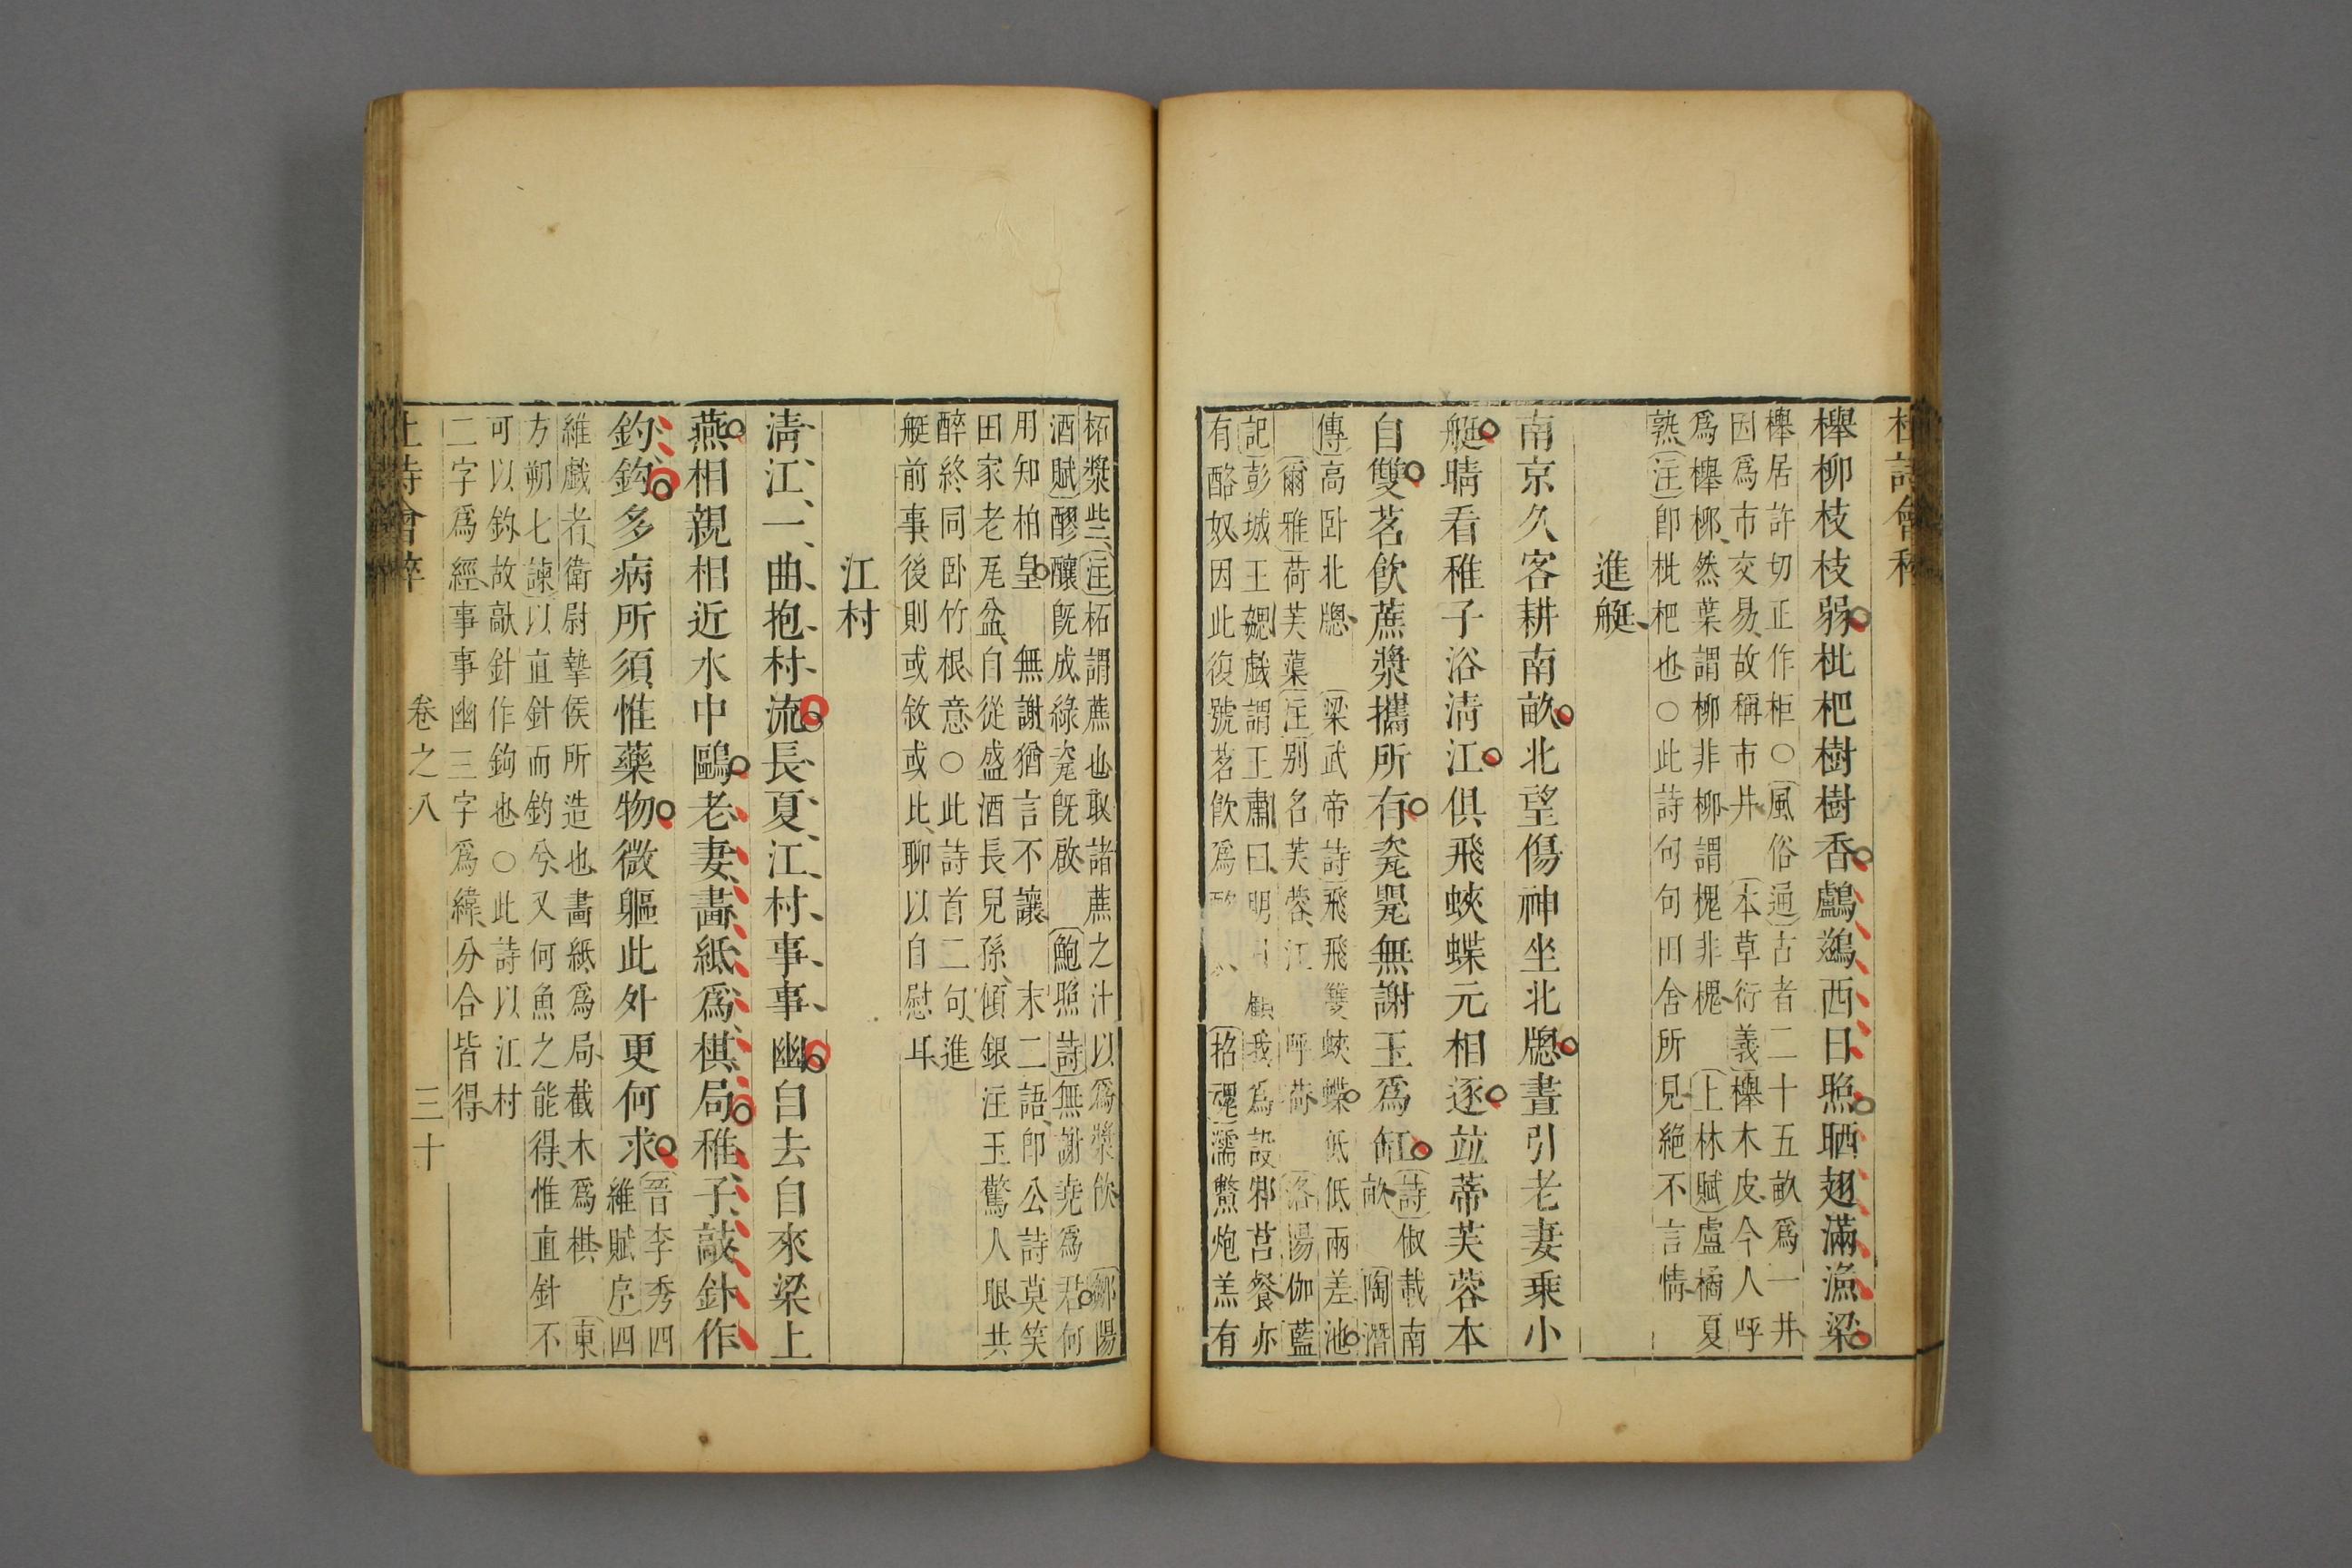 杜詩會稡
櫸柳枝枝弱枇杷樹樹香鸕鷀西日照晒翅滿漁梁
櫸居許切正作柜○風俗通古者二十五畝爲一井
因爲市交易故稱市井 本草衍義櫸木皮今人呼
爲櫸柳然葉謂柳非柳謂槐非槐 上林賦盧橘夏
熟注卽枇杷也○此詩句句田舍所見絕不言情
進艇
南京久客耕南畝北望傷神坐北牕晝引老妻乗小
艇晴看稚子浴清江俱飛蛺蝶元相逐竝蒂芙蓉本
自雙茗飲蔗漿攜所有瓷罌無謝玉爲缸
詩俶載南
畝 陶潛
傳高卧北牕 梁武帝詩飛飛雙蛺蝶低低兩差池
爾雅荷芙蕖注别名芙蓉江 呼荷 洛陽伽藍
記彭城王勰戲謂王肅曰明日顧我爲設邾莒餐亦
有酪奴因此復號茗飲爲 招魂濡鱉炮羔有
柘漿些注柘謂蔗也取諸蔗之汁以爲漿飲 鄒陽
酒賦醪釀既成綠瓷既啟 鮑照詩無謝堯爲君何
用知柏皇 無謝猶言不讓 末二語卽公詩莫笑
田家老瓦盆自從盛酒長兒孫傾銀注玉驚人眼共
醉終同卧竹根意○此詩首二句進
艇前事後則或敘或比聊以自慰耳
江村
清江一曲抱村流長夏江村事事幽自去自來梁上
燕相親相近水中鷗老妻畵紙爲棋局稚子敲針作
釣鈎多病所須惟藥物微軀此外更何求
晉李秀四
維賦序四
維戲者衛尉摯侯所造也畵紙爲局截木爲棋 東
方朔七諫以直針而釣兮又何魚之能得惟直針不
可以釣故敲針作鉤也○此詩以江村
二字爲經事事幽三字爲緯分合皆得
杜詩會稡 卷之八 三十